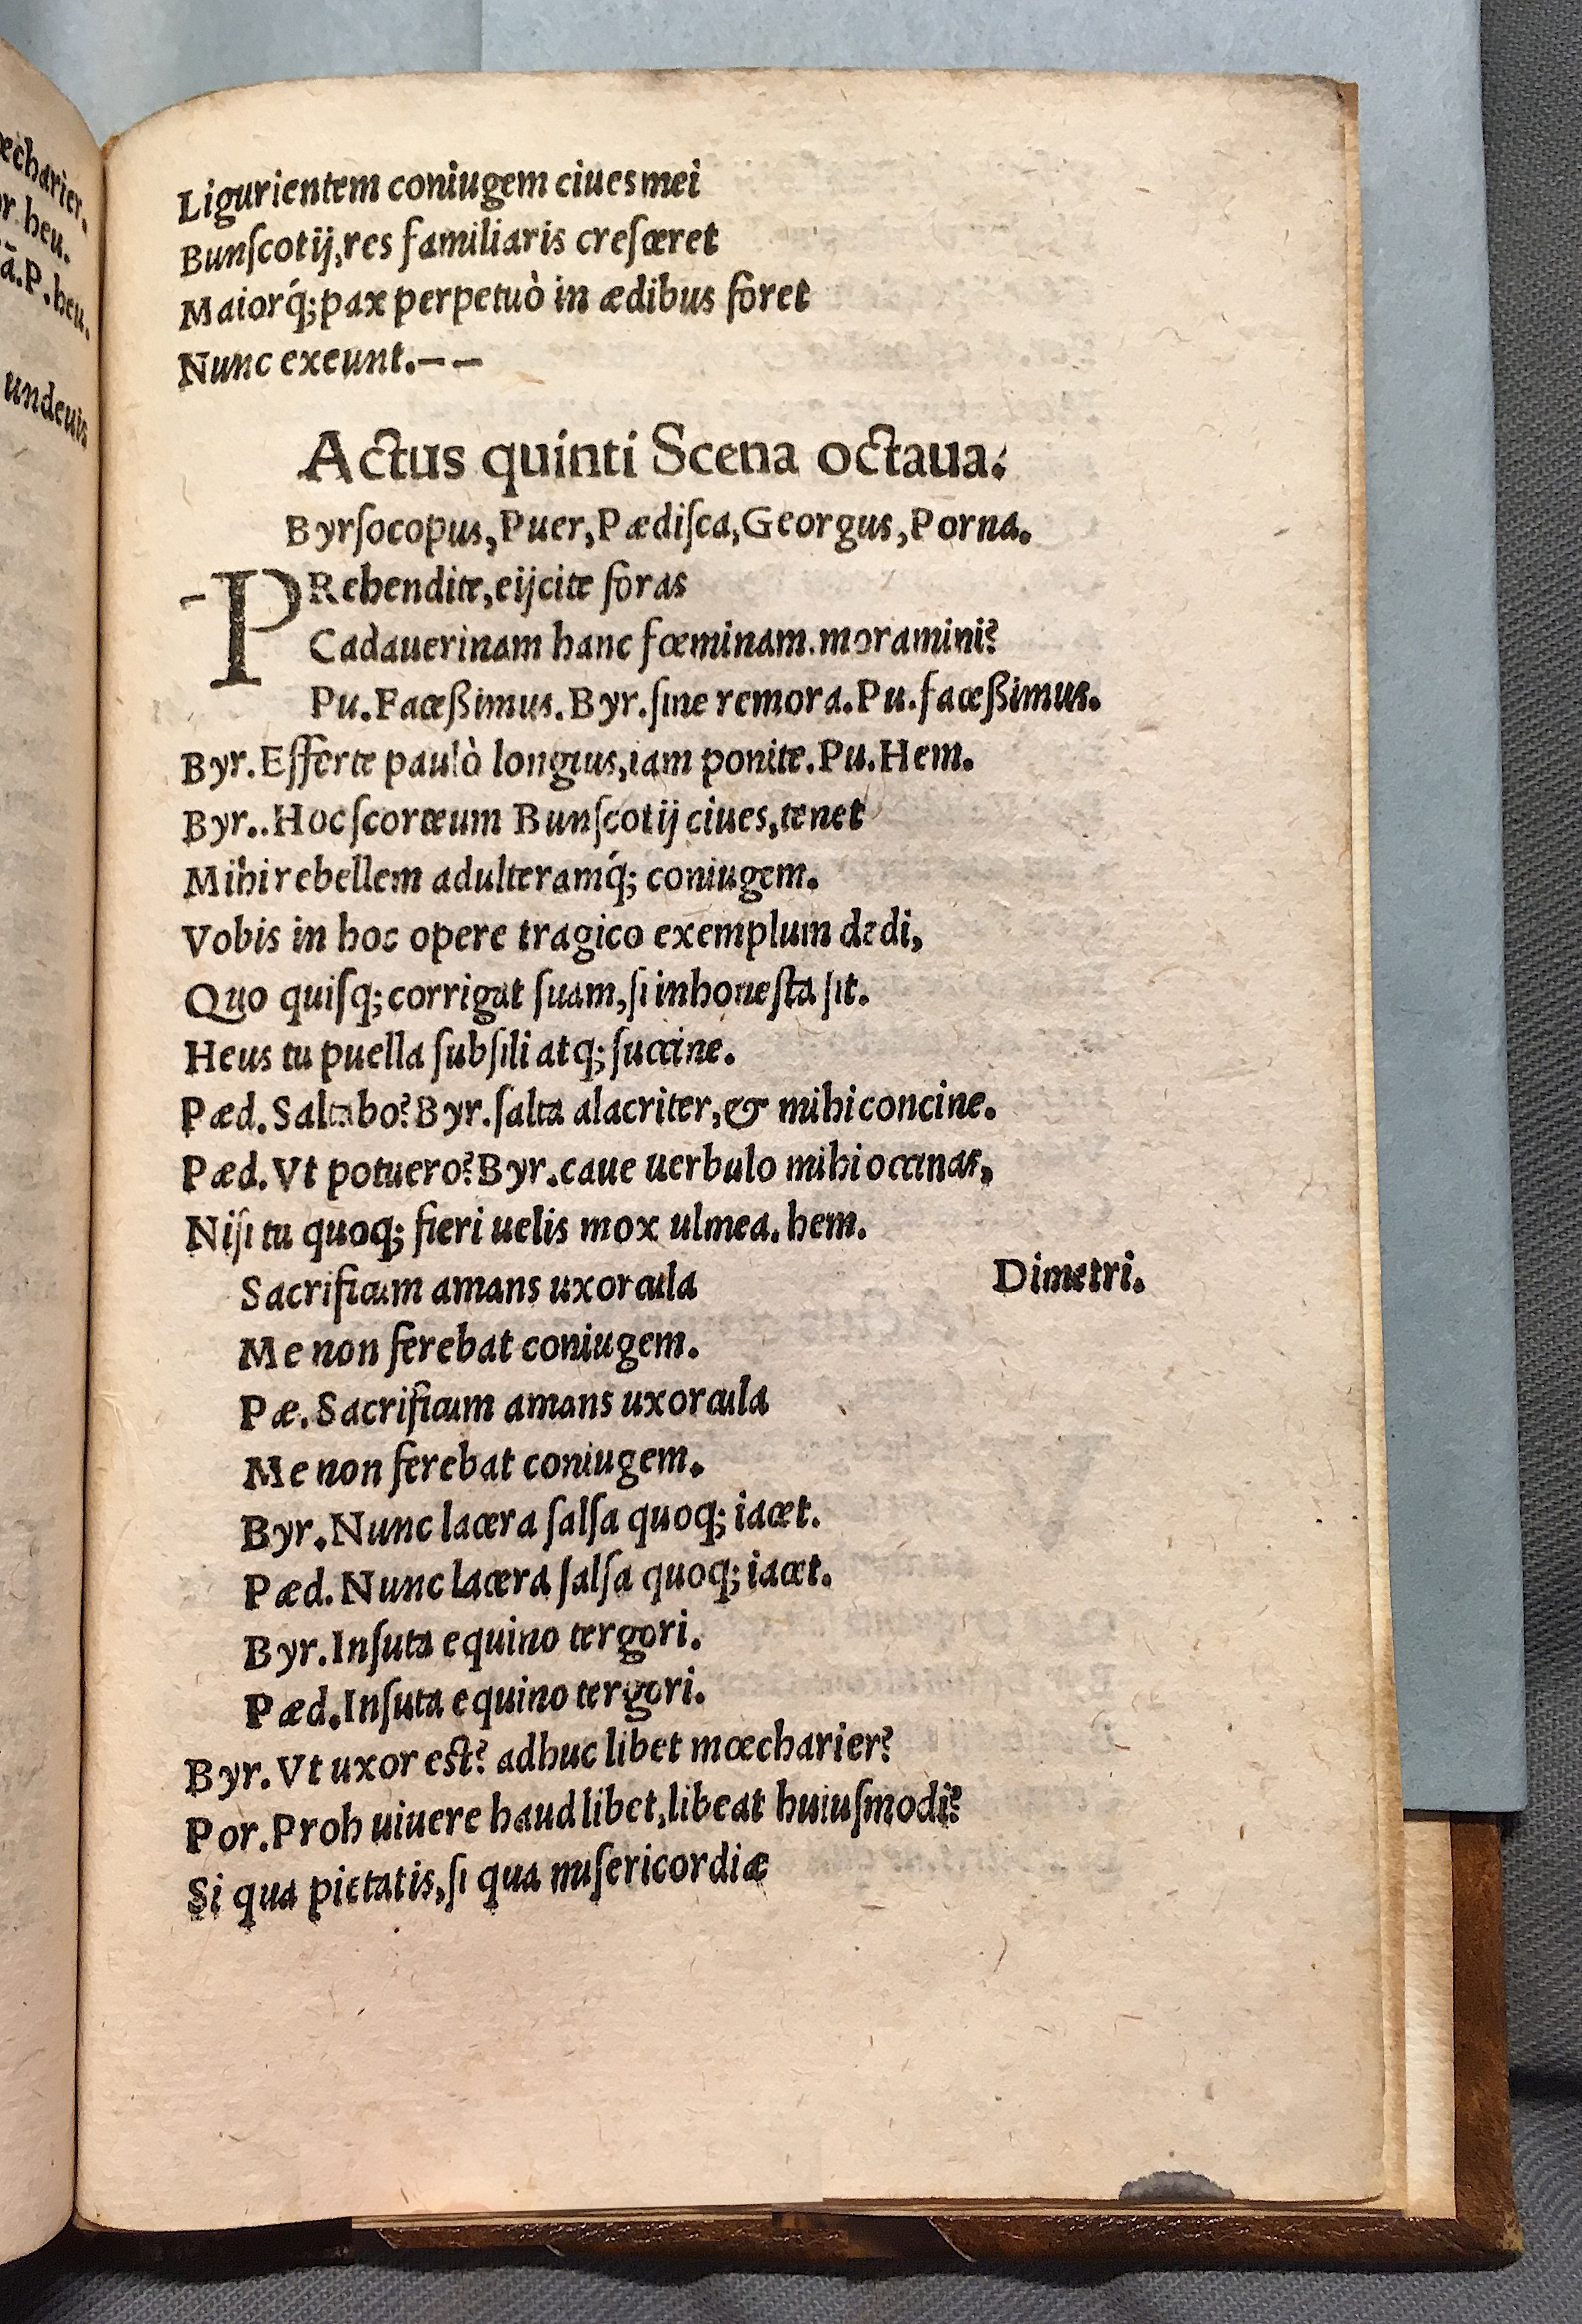 æcharier.
or. heu.
ā.P.heu.
undeuis
Ligurientem coniugem ciues mei
Bunſcotij,res familiaris creſceret
Maiorq́;pax perpetuò in ædibus foret
Nunc exeunt.— —
Actus quinti Scena octaua.
Byrſocopus,Puer,Pædiſca,Georgus,Porna.
-PRehendite,eijcite foras
Cadauerinam hanc fœminam.moramini?
Pu.Faceßimus.Byr.ſine remora.Pu.faceßimus.
Byr.Efferte paulò longius,iam ponite.Pu.Hem.
Byr..Hoc ſcorteum Bunſcotij ciues,tenet
Mihi rebellem adulteramq́; coniugem.
Vobis in hoc opere tragico exemplum dedi,
Quo quiſq; corrigat ſuam,ſi inhoneſta ſit.
Heus tu puella ſubſili atq; ſuccine.
Pæd.Saltabo?Byr.ſalta alacriter,& mihi concine.
Pæd.Vt potuero?Byr.caue uerbulo mihi occinas,
Niſi tu quoq; fieri uelis mox ulmea.hem.
Sacrificum amans uxorcula
Dimetri.
Me non ferebat coniugem.
Pæ.Sacrificum amans uxorcula
Me non ferebat coniugem.
Byr.Nunc lacera ſalſa quoq; iacet.
Pæd.Nunc lacera ſalſa quoq; iacet.
Byr.Inſuta equino tergori.
Pæd.Inſuta equino tergori.
Byr.Vt uxor eſt? adhuc libet mœcharier?
Por.Proh uiuere haud libet,libeat huiuſmodi?
Si qua pietatis,ſi qua miſericordiæ